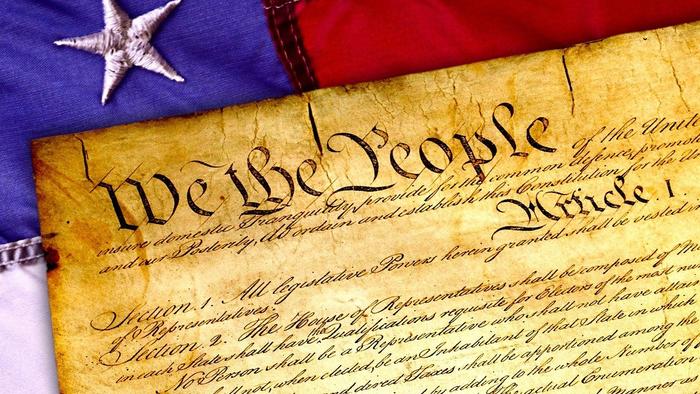 We the People of the Unite
insure domestic Tranquility, provide for the common defence, promote
and our Posterity, do ordain and establish this Constitution for the
Article I.
Section 1. All legislative Powers herein granted shall be vested in
of Representatives.
Section 2. The House of Representatives shall be composed of
in each State shall have Qualifications requisite for Electors of the most nu
No Person shall be a Representative who shall not have attai
shall not, when elected, be an Inhabitant of that State in which
Taxes shall be apportioned among the
by adding to the whole Number of
The actual Enumeration
Manner